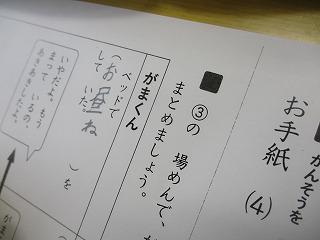 かんそうを
お手紙
(4)
③の 場めんで、
まとめましょう。
がまくん
ベッドで
(お昼ね
して いた
)を
いやだよ。もう
まって いるの、
あきあきしたよ。